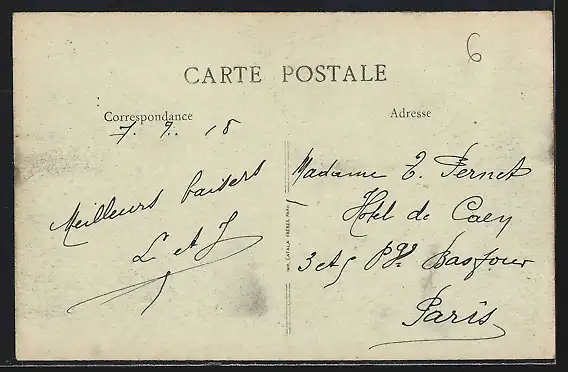 6
CARTE POSTALE
Correspondance
Adresse
7. 9. 18
Meilleurs baisers
L et J
IMP. CATALA FRÈRES, PARIS
Madame E. Pernet
Hôtel de Caen
3 et 5 Pge Basfour
Paris